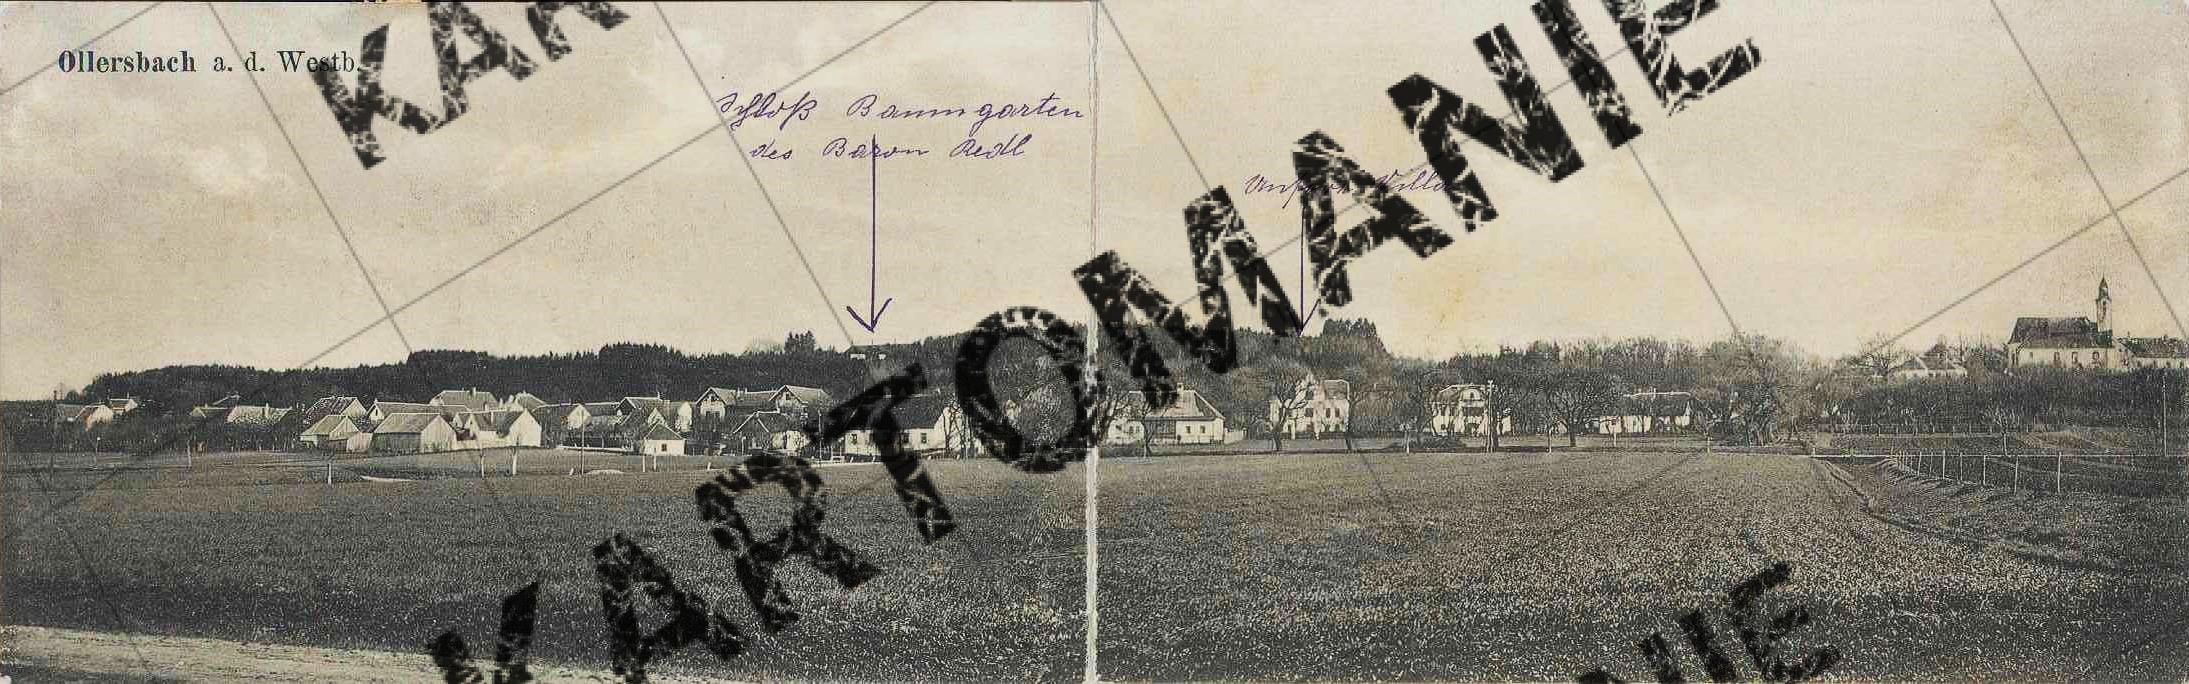 Ollersbach a. d. Westb.
Schloß Baumgarten
des Baron Redl
Unsere Villa
KARTOMANIE